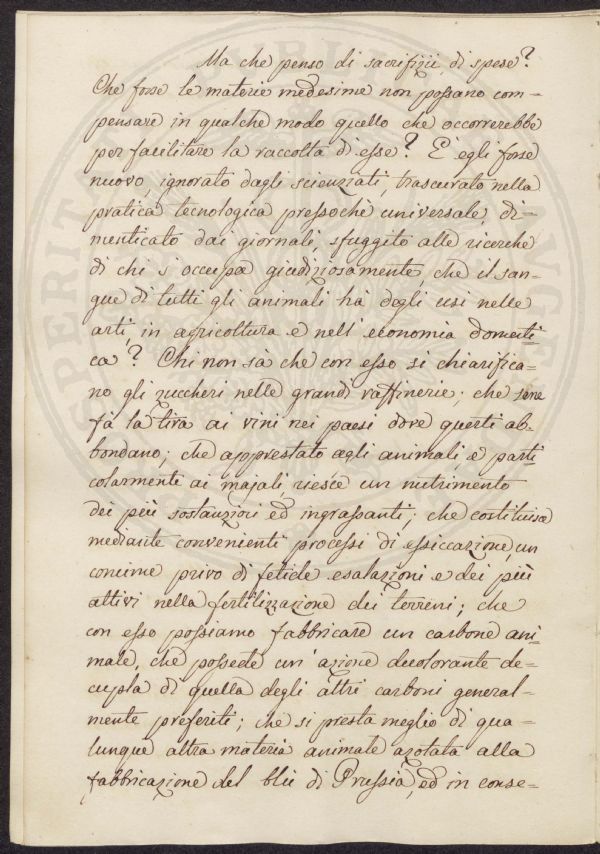 Ma che penso di sacrifizii, di spese?
Che forse le materie medesime non possano com=
pensare in qualche modo quello che occorrerebbe
per facilitare la raccolta di esse? E' egli forse
nuovo, ignorato dagli scienziati, trascurato nella
pratica tecnologica pressochè universale, di=
menticato dai giornali, sfuggito alle ricerche
di chi s'occupa giudiziosamente, che il san=
gue di tutti gli animali hà degli usi nelle
arti, in agricoltura e nell'economia domesti=
ca? Chi non sà che con esso si chiarifica=
no gli zuccheri nelle grandi raffinerie; che sene
fà la tira ai vini nei paesi dove questi ab=
bondano; che apprestato agli animali, e parti
colarmente ai majali, riesce un nutrimento
dei più sostanziosi ed ingrassanti; che costituisce
mediante convenienti processi di essiccazione, un
concime privo di fetide esalazioni e dei più
attivi nella fertilizzazione dei terreni; che
con esso possiamo fabbricare un carbone ani=
male, che possede un'azione decolorante de=
cupla di quella degli altri carboni general=
mente preferiti; che si presta meglio di qua=
lunque altra materia animale azotata alla
fabbricazione del blù di Prussia, ed in conse=